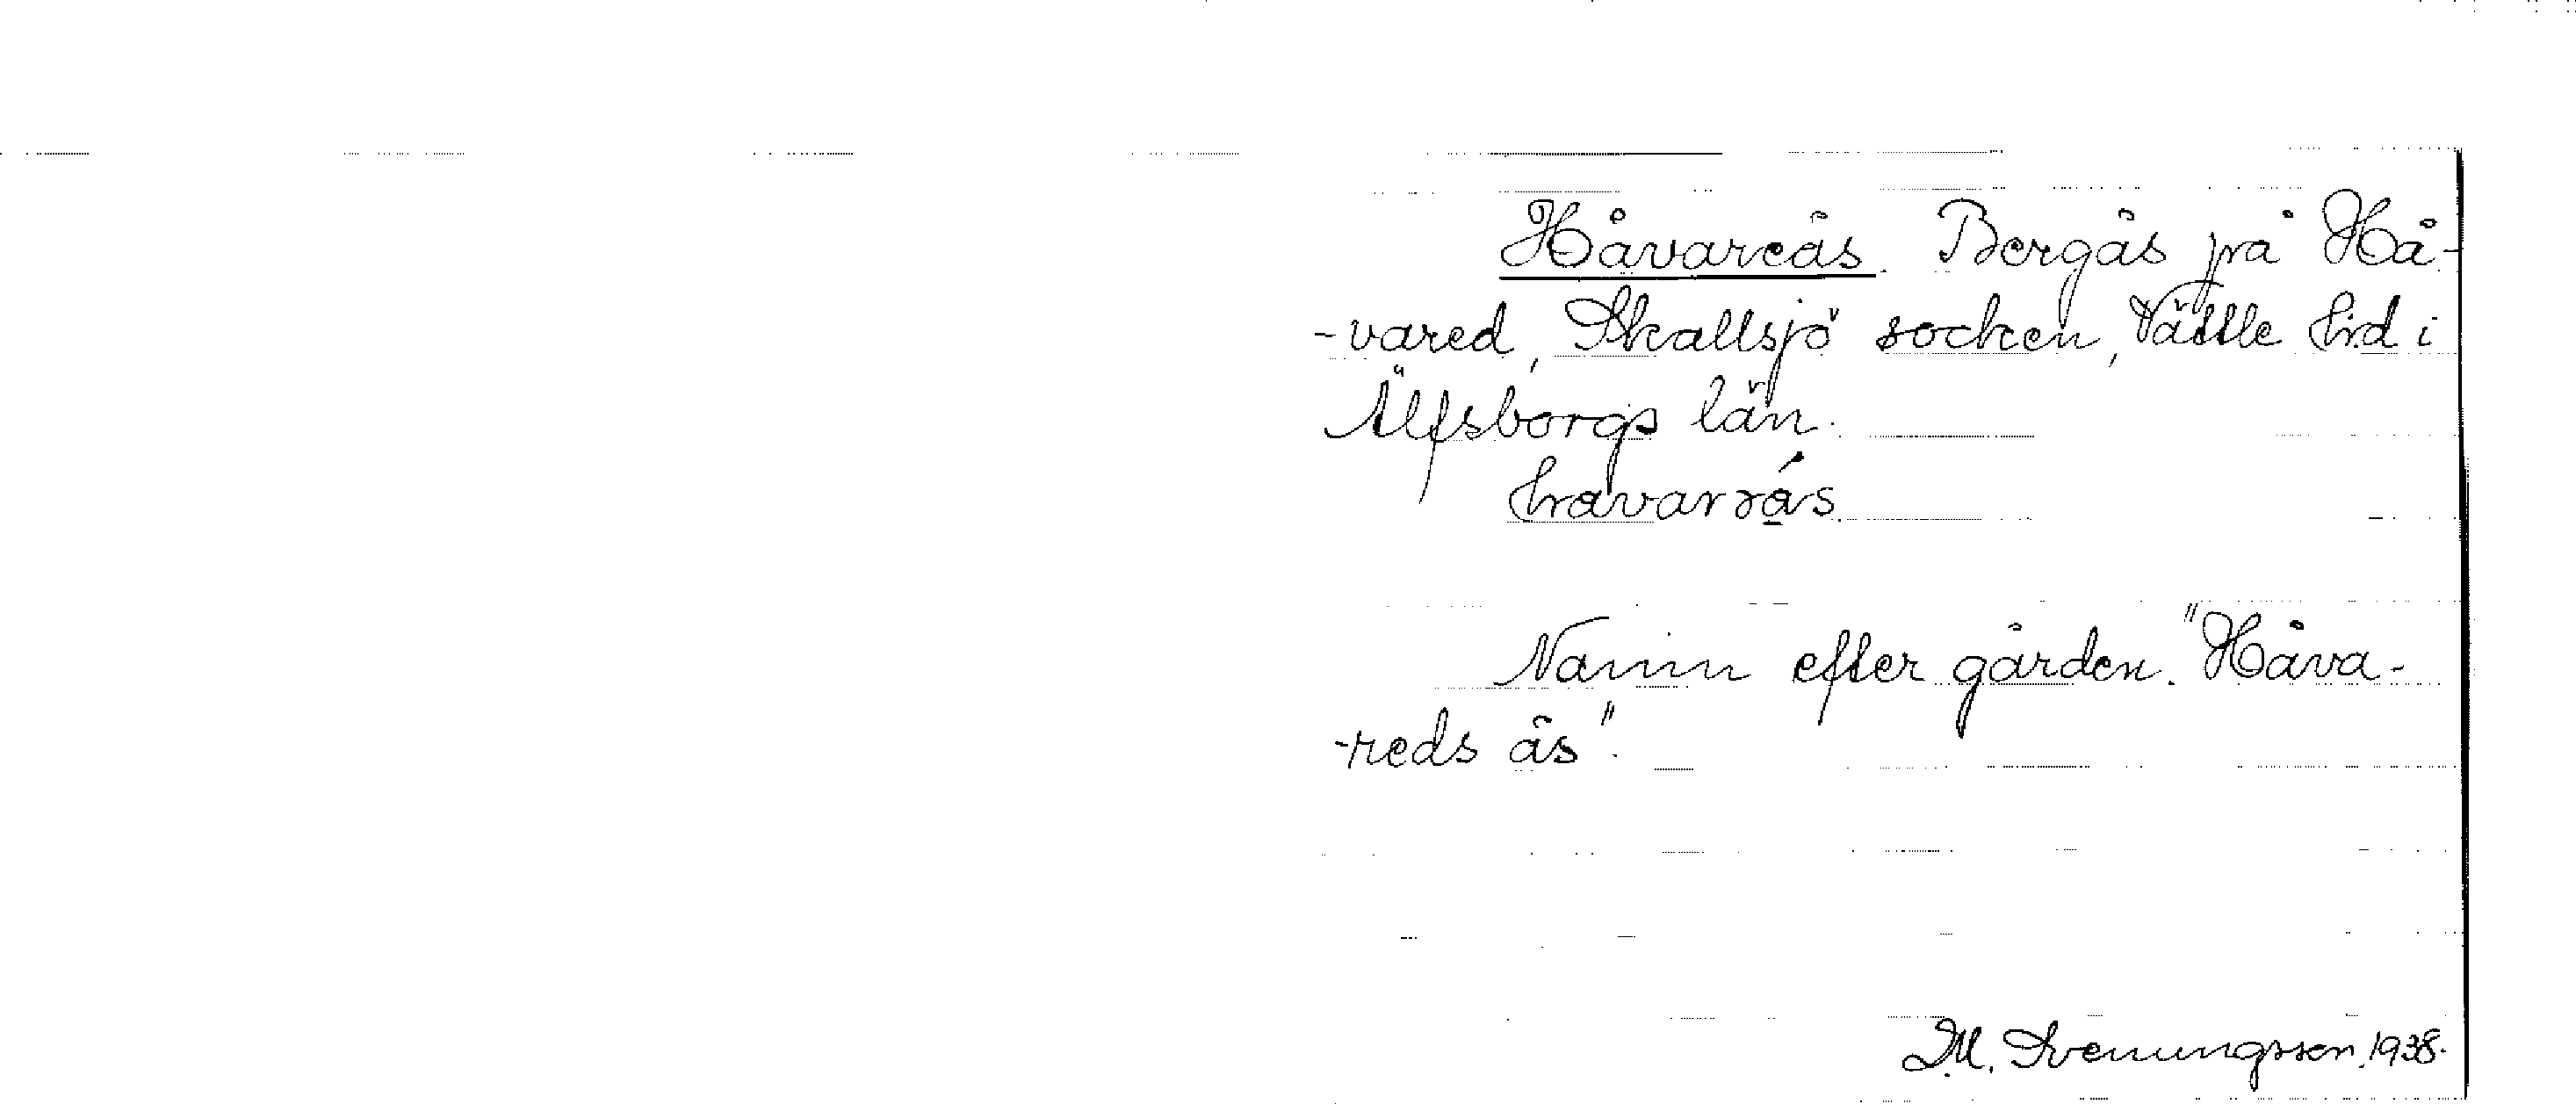 Håvareås. Bergås på Hå-
-vared, Skallsjö socken, Vättle hrd i
Älfsborgs län.
Namn efter gården. "Håva-
-reds ås".
M. Svenungsson, 1938.